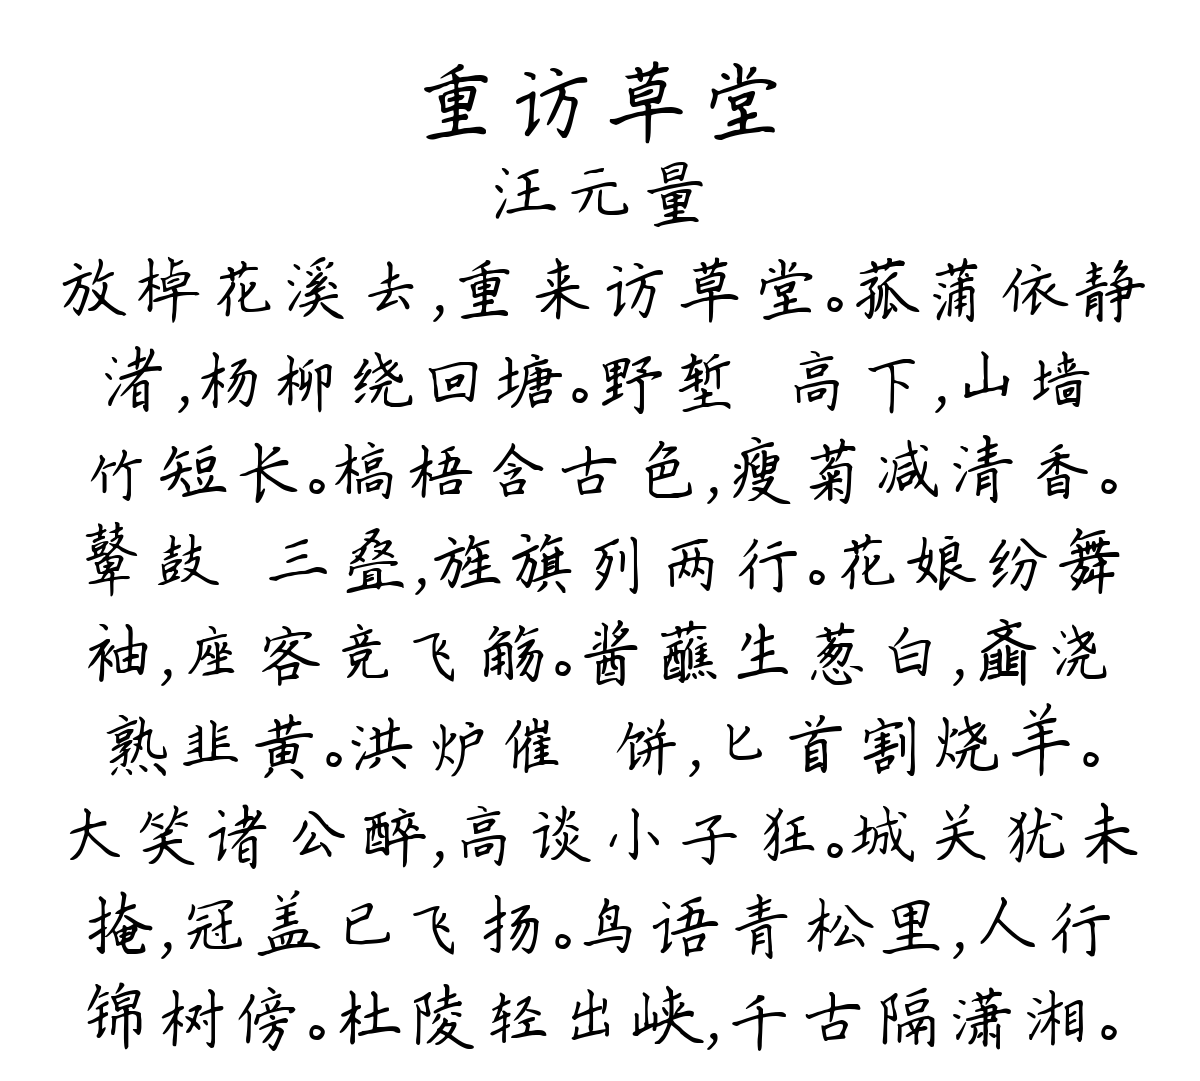 重访草堂
汪元量
放棹花溪去,重来访草堂。菰蒲依静
渚,杨柳绕回塘。野堑 高下,山墙
竹短长。槁梧含古色,瘦菊减清香。
鼙鼓 三叠,旌旗列两行。花娘纷舞
袖,座客竞飞觞。酱蘸生葱白,齑浇
熟韭黄。洪炉催 饼,匕首割烧羊。
大笑诸公醉,高谈小子狂。城关犹未
掩,冠盖已飞扬。鸟语青松里,人行
锦树傍。杜陵轻出峡,千古隔潇湘。